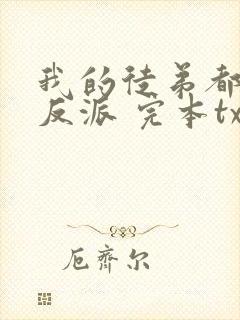 我的徒弟都
反派 完本tx
厄齐尔